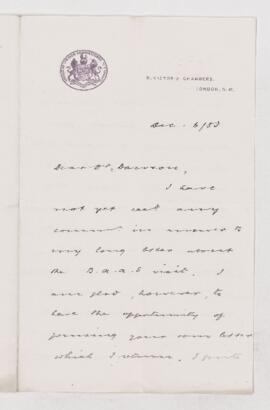 VICTORIA CHAMBERS,
LONDON, S.W.
Dec. 6/83
Dear Dr. Dawson,
I have
not yet had any
in answer to
my long letter about
the B.a.a.S visit. I
am glad, however, to
have the opportunity of
perusing your own letter
which I return. I